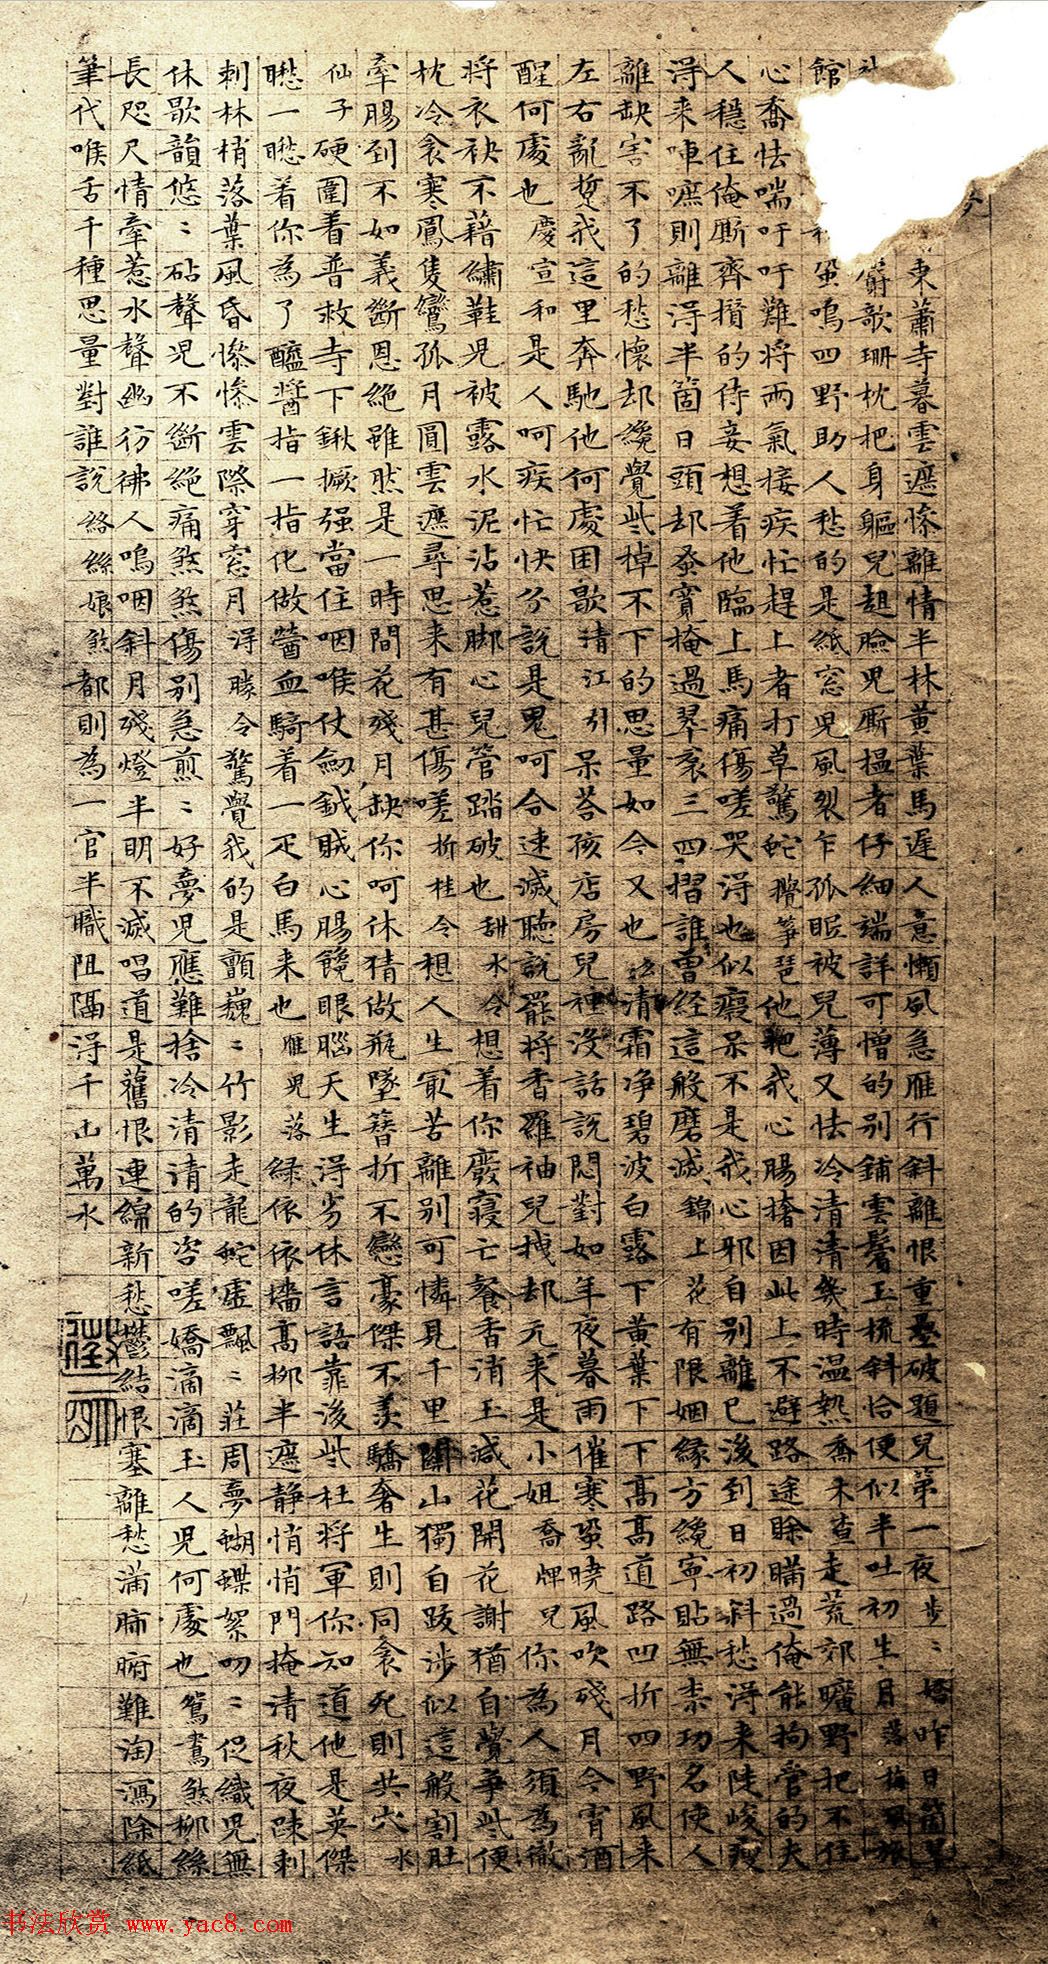 東蕭寺暮雲遮慘離情半林黃葉馬遲人意懶風急雁行斜離恨重疊破題兒第一夜步〻嬌昨日箇翠
麝歌珊枕把身軀兒趄臉兒厮揾者仔細端詳可憎的別鋪雲鬢玉梳斜恰便似半吐初生月落梅風旅
館蛩鳴四野助人愁的是紙窓兒風裂乍孤眠被兒薄又怯冷清清幾時温熱喬木查走荒郊曠野把不住
心喬怯喘吁吁難將兩氣接疾忙趕上者打草驚蛇攪筝琶他把我心腸撦因此上不避路途賒瞞過俺能拘管的夫
人穩住俺厮齊攢的侍妾想着他臨上馬痛傷嗟哭得也似癡呆不是我心邪自別離已後到日初斜愁得來陡峻瘦
得來唓嗻則離得半箇日頭却蚤寬掩過翠裙三四摺誰曾經這般磨滅錦上花有限姻緣方纔寧貼無柰功名使人
離缺害不了的愁懷却纔覺些掉不下的思量如今又也么清霜净碧波白露下黃葉下下高高道路凹折四野風來
左右亂踅我這里奔馳他何處困歇清江引呆荅孩店房兒裡沒話說悶對如年夜暮雨催寒蛩曉風吹殘月今宵酒
醒何處也慶宣和是人呵疾忙快分說是鬼呵合速滅聽說罷將香羅袖兒拽却元來是小姐喬牌兒你為人須為徹
將衣袂不藉繡鞋兒被露水泥沾惹脚心兒管踏破也甜水令想着你廢寢亡餐香消玉減花開花謝猶自覺爭些便
枕冷衾寒鳳隻鸞孤月圓雲遮尋思來有甚傷嗟折桂令想人生最苦離別可憐見千里關山獨自跋涉似這般割肚
牽腸到不如義斷恩絕雖然是一時間花殘月缺你呵休猜做瓶墜簪折不戀豪傑不羨驕奢生則同衾死則共穴水
仙子硬圍着普救寺下鍬撅强當住咽喉仗劍鉞賊心腸饞眼腦天生得劣休言語靠後些杜將軍你知道他是英傑
一着你為了醯醬指一指化做膋血騎着一疋白馬來也雁兒落緑依依墻高柳半遮静悄悄門掩清秋夜踈剌
刺林梢落葉風昏慘慘雲際穿窓月得勝令驚覺我的是顫巍〻竹影走龍蛇虛飄〻莊周夢蝴蝶絮叨〻促織兒無
休歇韻悠〻砧聲兒不斷絕痛煞煞傷別急煎〻好夢兒應難捨冷清清的咨嗟嬌滴滴玉人兒何處也鴛鴦煞柳絲
長咫尺情牽惹水聲幽彷彿人嗚咽斜月殘燈半明不滅唱道是舊恨連綿新愁鬱結恨塞離愁滿肺腑難淘瀉除紙
筆代喉舌千種思量對誰說絡絲娘煞都則為一官半職阻隔得千山萬水
书法欣赏 www.yac8.com